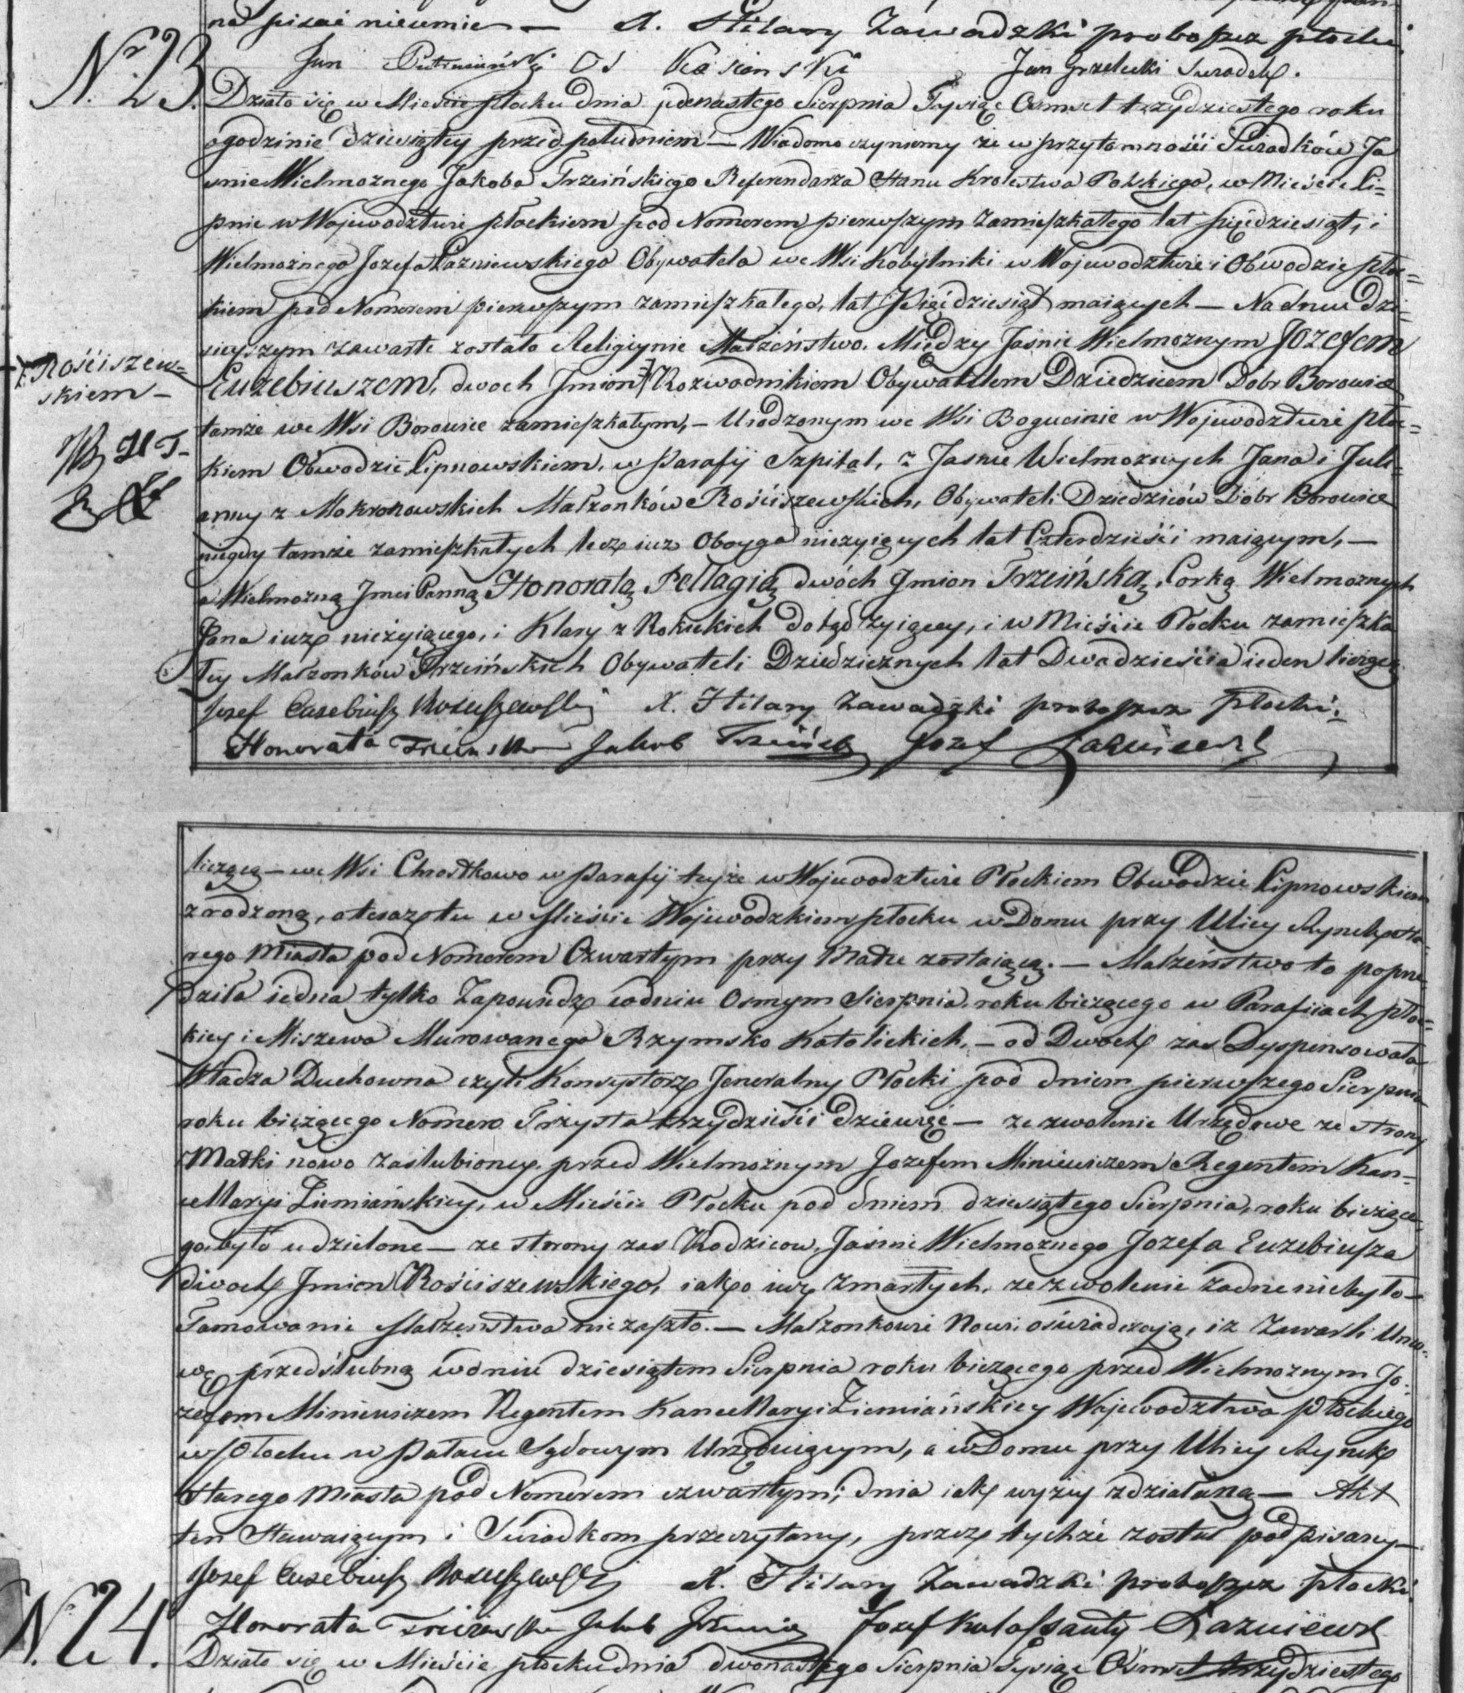 na pisać nieumie — X. Hilary Zawadzki proboszcz płocki
Jan Os Kosiński Jan Grzelecki Swiadek.
Nr. 23.
Działo się w Mieście Płocku dnia jedenastego Sierpnia Tysiąc Osmset trzydziestego roku
o godzinie dziesiątey przed południem — Wiadomo czyniemy że w przytomności Swiadków Ja
snie Wielmożnego Jakoba Trzcińskiego Referendarza Stanu Krolestwa Polskiego, w Mieście Li-
pnie w Wojewodztwie płockiem pod Nomerem pierwszym zamieszkałego lat pięćdziesiąt, i
Wielmożnego Jozefa Łazniewskiego Obywatela we Wsi Kobylniki w Wojewodztwie i Obwodzie Płoc=
kiem pod Nomerem pierwszym zamieszkałego, lat pięćdziesiąt maiących — Na dniu dzi-
sieyszym zawarte zostało Religiynie Małżeństwo. Między Jaśnie Wielmożnym JOZefem
Euzebiuszem, dwoch Jmion Rozwodnikiem Obywatelem Dziedzicem Dobr Borowice
Rościszew=
skiem —
tamże we Wsi Borowice zamieszkałym, — Urodzonym we Wsi Bogucinie w Wojewodztwie Płoc=
kiem Obwodzie Lipnowskiem, w Parafij Szpital, z Jasnie Wielmożnych Jana i Juli-
anny z Mokronowskich Małżonków Rościszewskich, Obywateli Dziedziców Dobr Borowice
niegdy tamże zamieszkałych lecz iuz Oboyga nieżyiących lat Czterdzieści maiącym, —
a Wielmożną Jmci Panną Honoratą Pellagią dwóch Jmion Trzcińską, Corką Wielmożnych
Jana iuz nieżyiącego, i Klary z Rokickich dotąd żyiącey, i w Mieście Płocku zamieszka
łey Małżonków Trzcińskich Obywateli Dziedzicznych lat Dwadzieścia ieden liczącą
Jozef Euzebiusz Rościszewski X. Hilary Zawadzki proboszcz Płocki
Honorata Trzcińska Jakob Trzciński Jozef Łazniewski
liczącą — we Wsi Chrostkowo w Parafij teyże w Wojewodztwie Płockiem Obwodzie Lipnowskiem
zrodzoną, a teraz tu w Mieście Wojewodzkiem Płocku w Domu przy Ulicy Rynek Sta-
rego Miasta pod Nomerem Czwartym przy Matce zostaiącą. — Małżeństwo to poprze
dziła iedna tylko Zapowiedz w dniu Osmym Sierpnia, roku bieżącego w Parafiiach Płoc=
kiey i Miszewa Murowanego Rzymsko Katolickich, — od Dwoch zas Dyspensowała
Władza Duchowna czyli Konsystorz Jeneralny Płocki pod dniem pierwszego Sierpnia
roku bieżącego Nomero Trzysta trzydzieści dziewięć — zezwolenie Urzędowe ze strony
Matki nowo zaslubioney przed Wielmożnym Jozefem Miniewiczem Regentem Kan-
cellaryi Ziemiańskiey, w Mieście Płocku pod dniem dziesiątego Sierpnia, roku bieżące-
go, było udzielone — ze strony zas Rodzicow, Jaśnie Wielmożnego Jozefa Euzebiusza
dwoch Jmion Rościszewskiego, iako iuz zmarłych, zezwolenie żadne niebyło —
Tamowanie Małżeństwa nie zaszło. — Małżonkowie Nowi oświadczaią, iż zawarli Umo-
wę przedślubną w dniu dziesiątem Sierpnia roku bieżącego przed Wielmożnym Jo-
zefem Miniewiczem Regentem Kancellaryi Ziemiańskiey Wojewodztwa Płockiego
w Płocku w Pałacu Sądowym Urzęduiącym, a w Domu przy Ulicy Rynek
Starego Miasta pod Nomerem czwartym; dnia iak wyżey zdziałaną — Akt
ten Stawaiącym i Swiadkom przeczytany, przez tychże został podpisany —
Jozef Euzebiusz Rościszewski X. Hilary Zawadzki proboszcz płocki
Honorata Trzcińska Jakob Trzciński Jozef Kalassanty Łazniewski
Nr. 24.
Działo się w Mieście Płocku dnia dwonastego Sierpnia Tysiąc Osmset trzydziestego